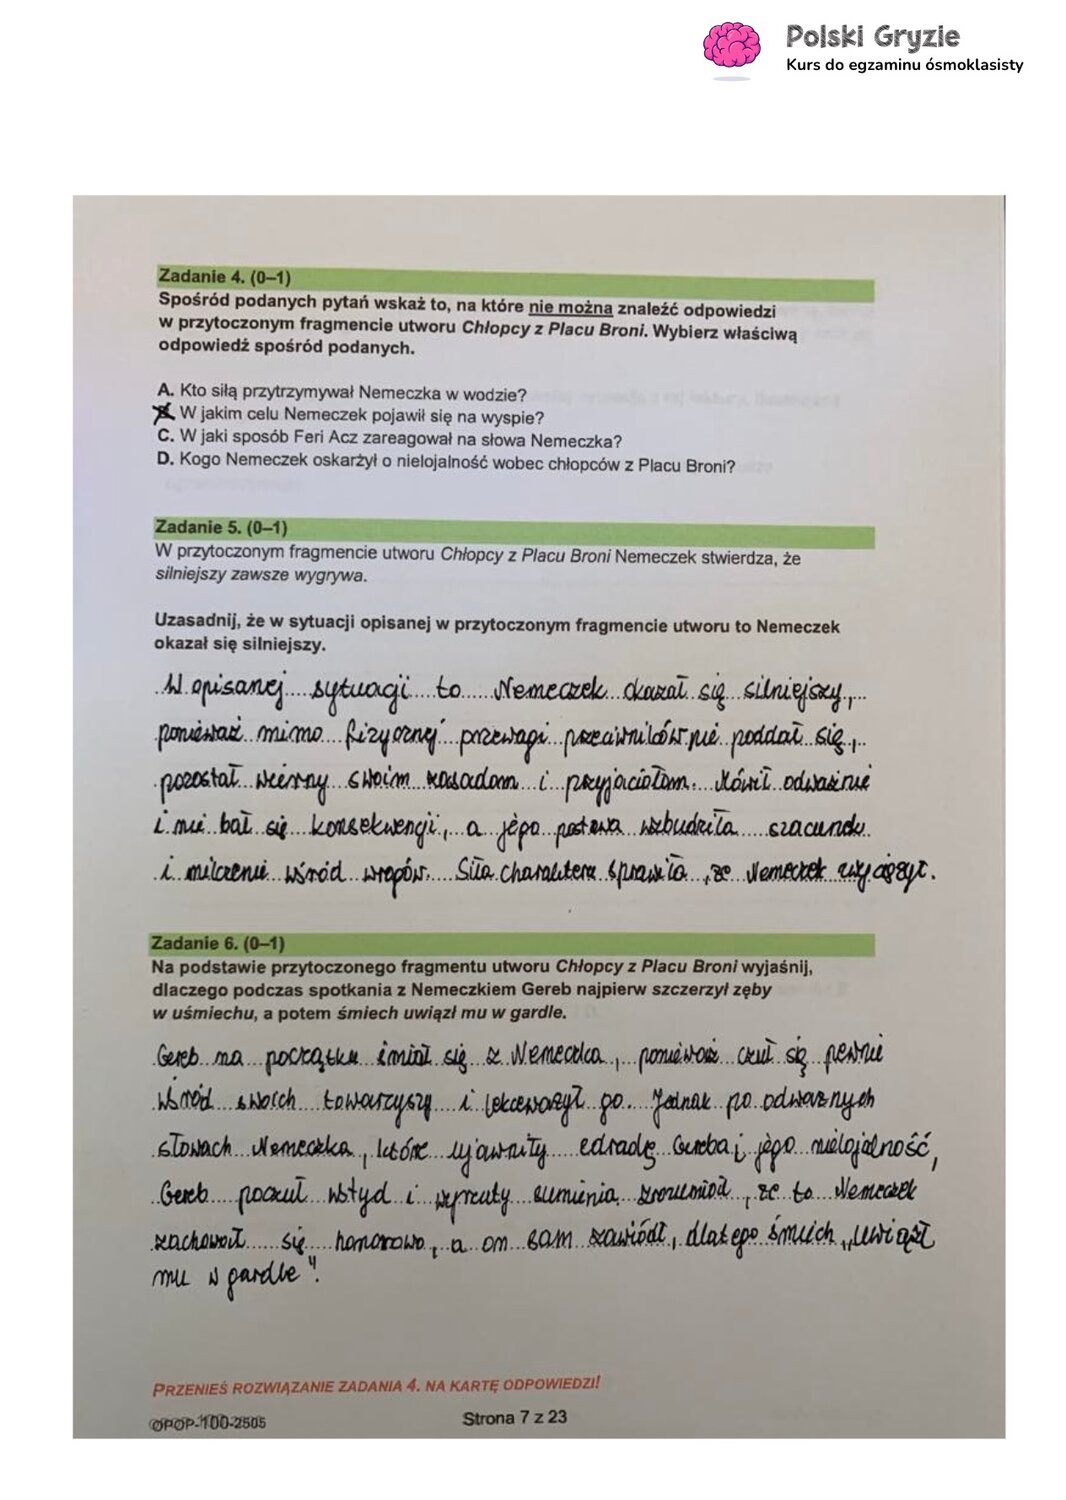 Polski Gryzie
Kurs do egzaminu ósmoklasisty
Zadanie 4. (0–1)
Spośród podanych pytań wskaż to, na które nie można znaleźć odpowiedzi
w przytoczonym fragmencie utworu Chłopcy z Placu Broni. Wybierz właściwą
odpowiedź spośród podanych.
A. Kto siłą przytrzymywał Nemeczka w wodzie?
B. W jakim celu Nemeczek pojawił się na wyspie?
C. W jaki sposób Feri Acz zareagował na słowa Nemeczka?
D. Kogo Nemeczek oskarżył o nielojalność wobec chłopców z Placu Broni?
Zadanie 5. (0–1)
W przytoczonym fragmencie utworu Chłopcy z Placu Broni Nemeczek stwierdza, że
silniejszy zawsze wygrywa.
Uzasadnij, że w sytuacji opisanej w przytoczonym fragmencie utworu to Nemeczek
okazał się silniejszy.
W opisanej sytuacji to Nemeczek okazał się silniejszy,
ponieważ mimo fizycznej przewagi przeciwników nie poddał się,
pozostał wierny swoim zasadom i przyjaciołom. Mówił odważnie
i nie bał się konsekwencji, a jego postawa wzbudziła szacunek
i milczenie wśród wrogów. Siła charakteru sprawiła, że Nemeczek zwyciężył.
Zadanie 6. (0–1)
Na podstawie przytoczonego fragmentu utworu Chłopcy z Placu Broni wyjaśnij,
dlaczego podczas spotkania z Nemeczkiem Gereb najpierw szczerzył zęby
w uśmiechu, a potem śmiech uwiązł mu w gardle.
Gereb na początku śmiał się z Nemeczka, ponieważ czuł się pewnie
wśród swoich towarzyszy i lekceważył go. Jednak po odważnych
słowach Nemeczka, które ujawniły zdradę Gereba i jego nielojalność,
Gereb poczuł wstyd i wyrzuty sumienia zrozumiał, że to Nemeczek
zachował się honorowo, a on sam zawiódł, dlatego śmiech „uwiązł
mu w gardle".
PRZENIEŚ ROZWIĄZANIE ZADANIA 4. NA KARTĘ ODPOWIEDZI!
OPOP-100-2505
Strona 7 z 23